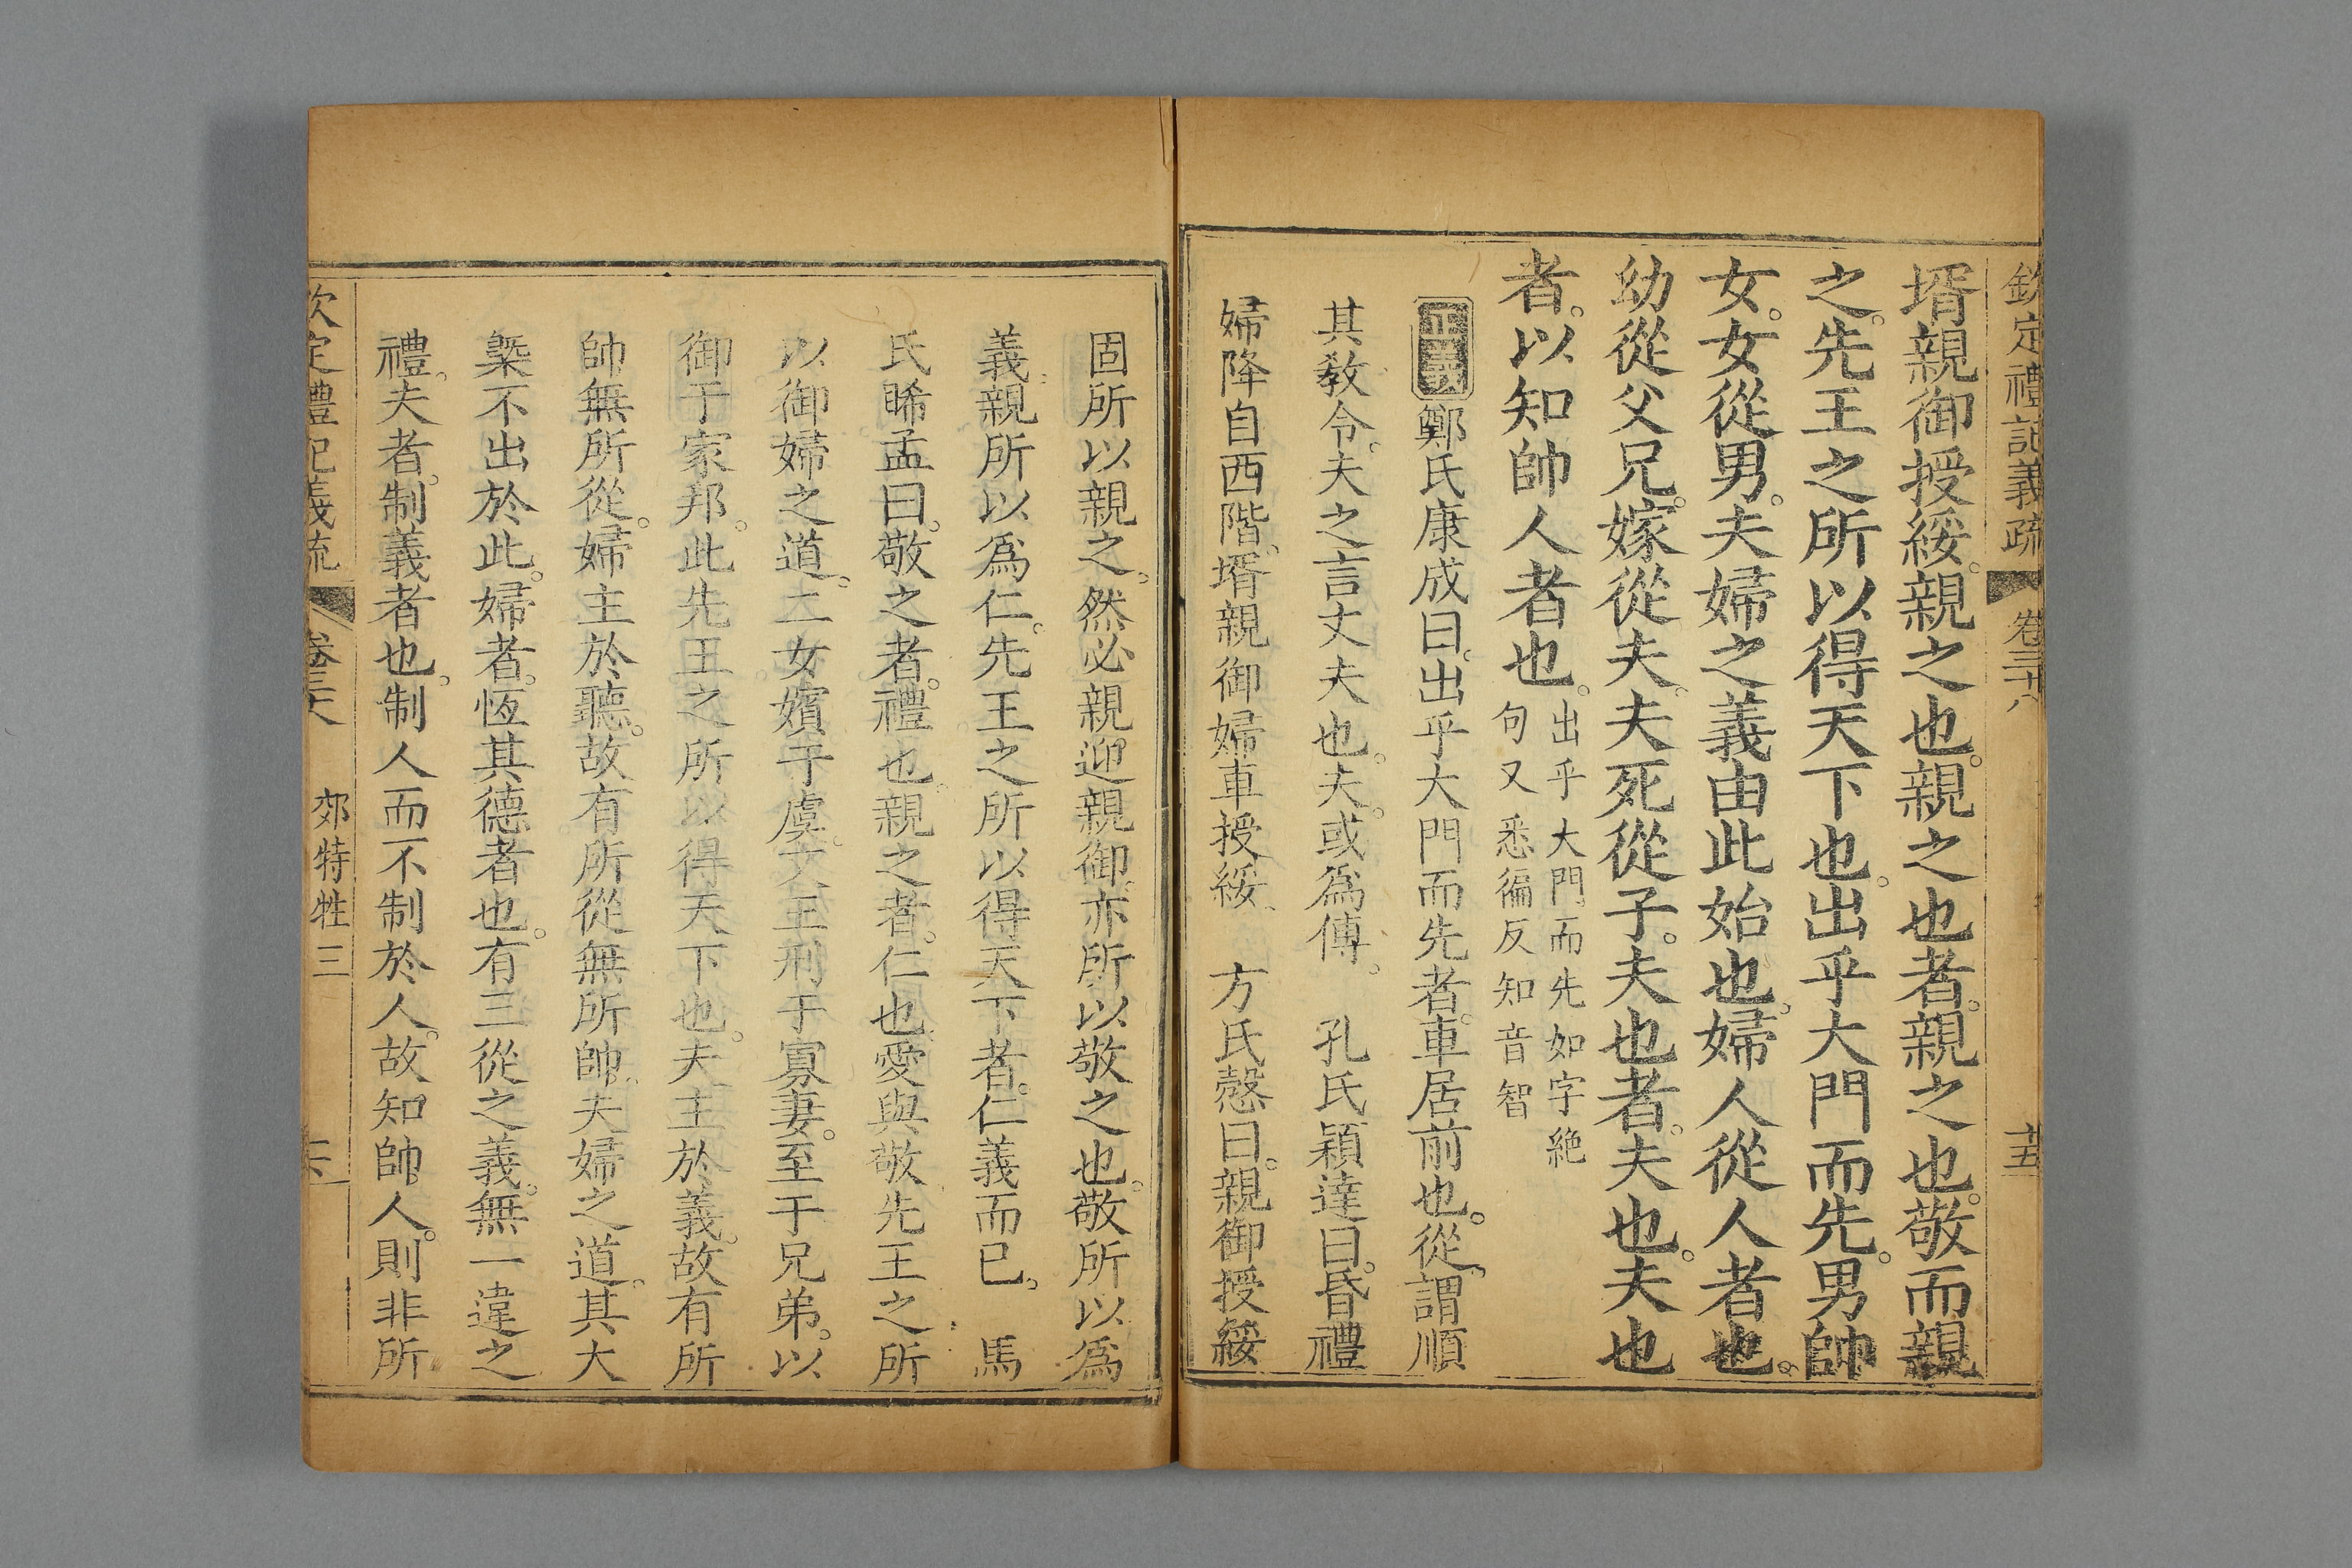 欽定禮記義疏 卷三十八 十五
壻親御授綏。親之也。親之也者。親之也。敬而親
之。先王之所以得天下也。出乎大門而先。男帥
女。女從男。夫婦之義由此始也。婦人從人者也。
幼從父兄。嫁從夫。夫死從子。夫也者。夫也。夫也
者。以知帥人者也。
出乎大門而先如字絶
句又悉徧反知音智
正義 鄭氏康成曰。出乎大門而先者。車居前也。從。謂順
其敎令。夫之言丈夫也。夫。或爲傅。 孔氏穎達曰。昏禮
婦降自西階。壻親御婦車授綏。 方氏慤曰。親御授綏
固所以親之。然必親迎親御。亦所以敬之也。敬所以爲
義。親所以爲仁。先王之所以得天下者。仁義而已。 馬
氏睎孟曰。敬之者。禮也。親之者。仁也。愛與敬先王之所
以御婦之道。二女嬪于虞。文王刑于寡妻。至于兄弟。以
御于家邦。此先王之所以得天下也。夫主於義。故有所
帥無所從。婦主於聽。故有所從無所帥。夫婦之道。其大
槩不出於此。婦者。恆其德者也。有三從之義。無一違之
禮。夫者。制義者也。制人而不制於人。故知帥人。則非所
欽定禮記義疏 卷三十八 郊特牲三